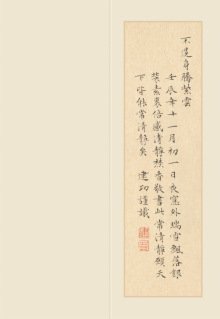 不從身騰紫雲
壬辰年十一月初一日夜窗外瑞雪飄落銀
裝素裹倍感清靜焚香敬書此常清靜願天
下皆能常清靜矣 建功謹識